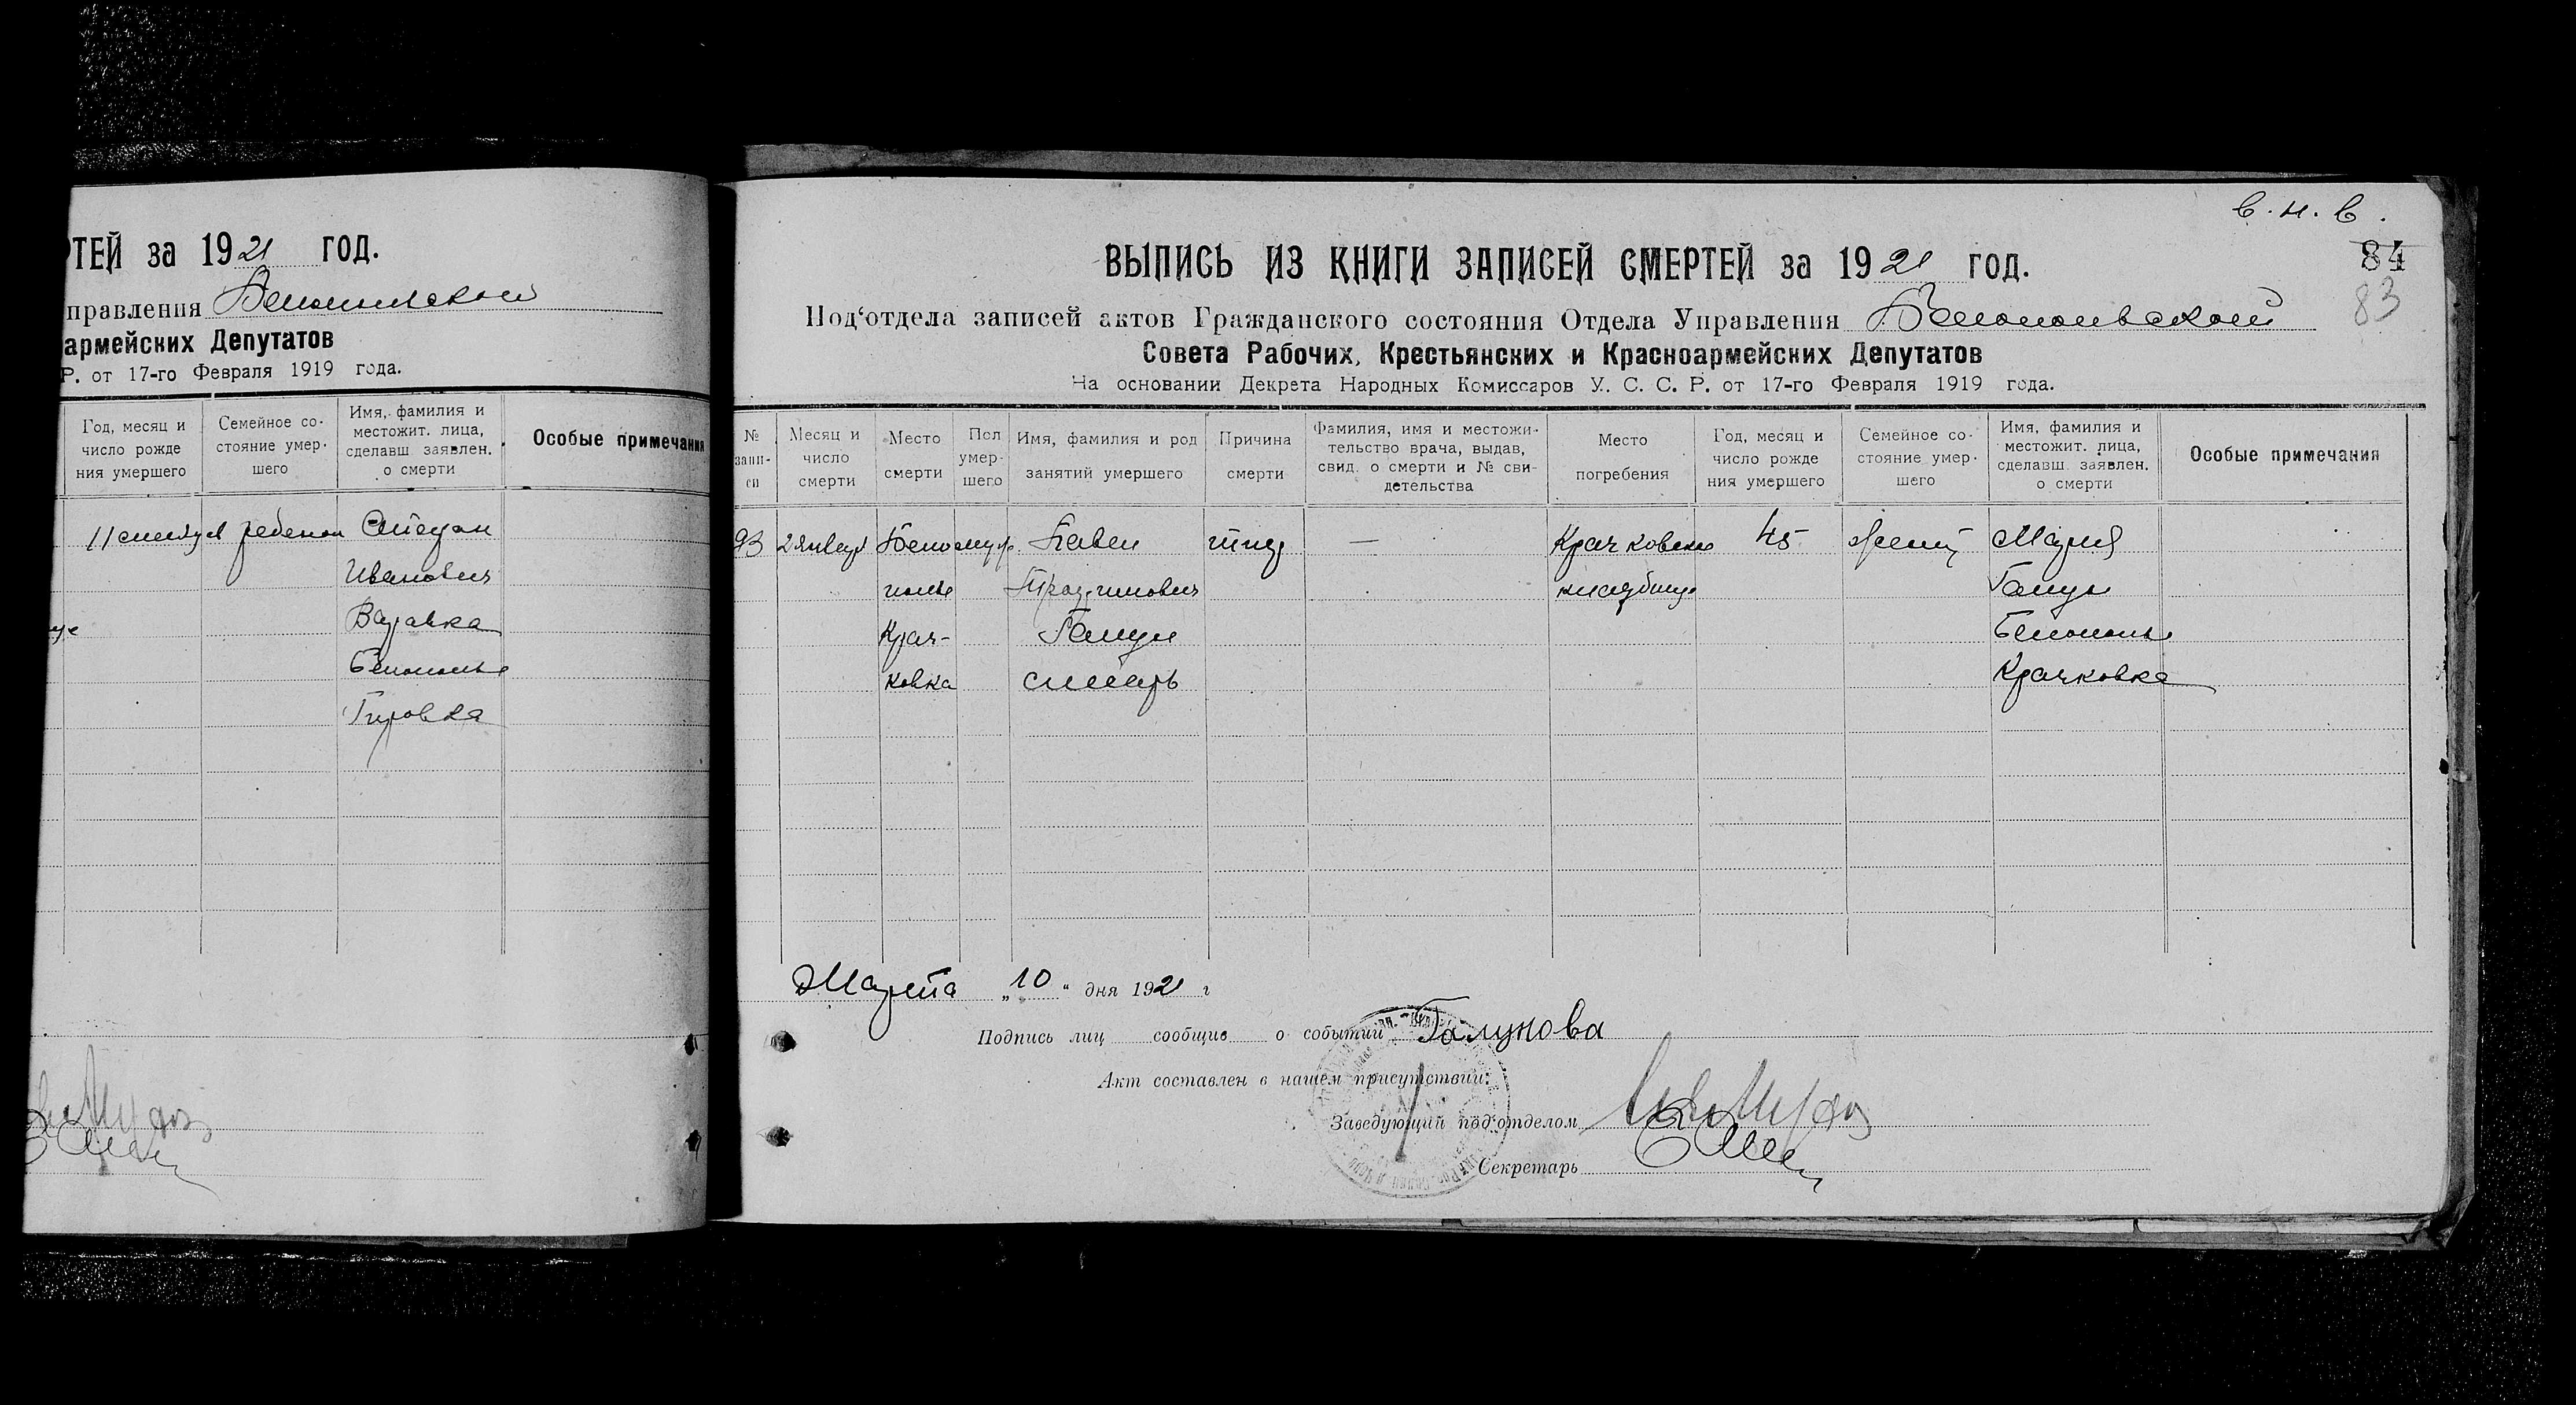 РТЕЙ за 1921 ГОД.
правления
армейских Депутатов
Р. от 17-го Февраля 1919 года.
Год, месяц и число рожде ния умершего
Семейное со- стояние умер- шего
Имя, фамилия и местожит. лица, сделавш заявлен. о смерти
Особые примечания
11 ребенок Степан
Иванович
Варавка
Белополье
Гировка
в. н. в.
84
83
ВЫПИСЬ ИЗ КНИГИ ЗАПИСЕЙ СМЕРТЕЙ за 1921 ГОД.
Под‘отдела записей актов Гражданского состояния Отдела Управления Белопольской
Совета Рабочих, Крестьянских и Красноармейских Депутатов
На основании Декрета Народных Комиссаров У. С. С. Р. от 17-го Февраля 1919 года.
№ запи- си
Месяц и число смерти
Место смерти
Пол умер- шего
Имя, фамилия и род занятий умершего
Причина смерти
Фамилия, имя и местожи- тельство врача, выдав, свид. о смерти и № сви- детельства
Место погребения
Год, месяц и число рожде ния умершего
Семейное со- стояние умер- шего
Имя, фамилия и местожит. лица, сделавш. заявлен. о смерти
Особые примечания
93 2 января Бело муж. Павел тиф — Крачковское 45 женат Мария
полье кладбище Галун
Крач- Галун Белополье
ковка слесарь Крачковка
Марта „10“ дня 1921 г
Подпись лиц сообщив о событии Галунова
Акт составлен в нашем присутствии:
Заведующий под‘отделом
Секретарь